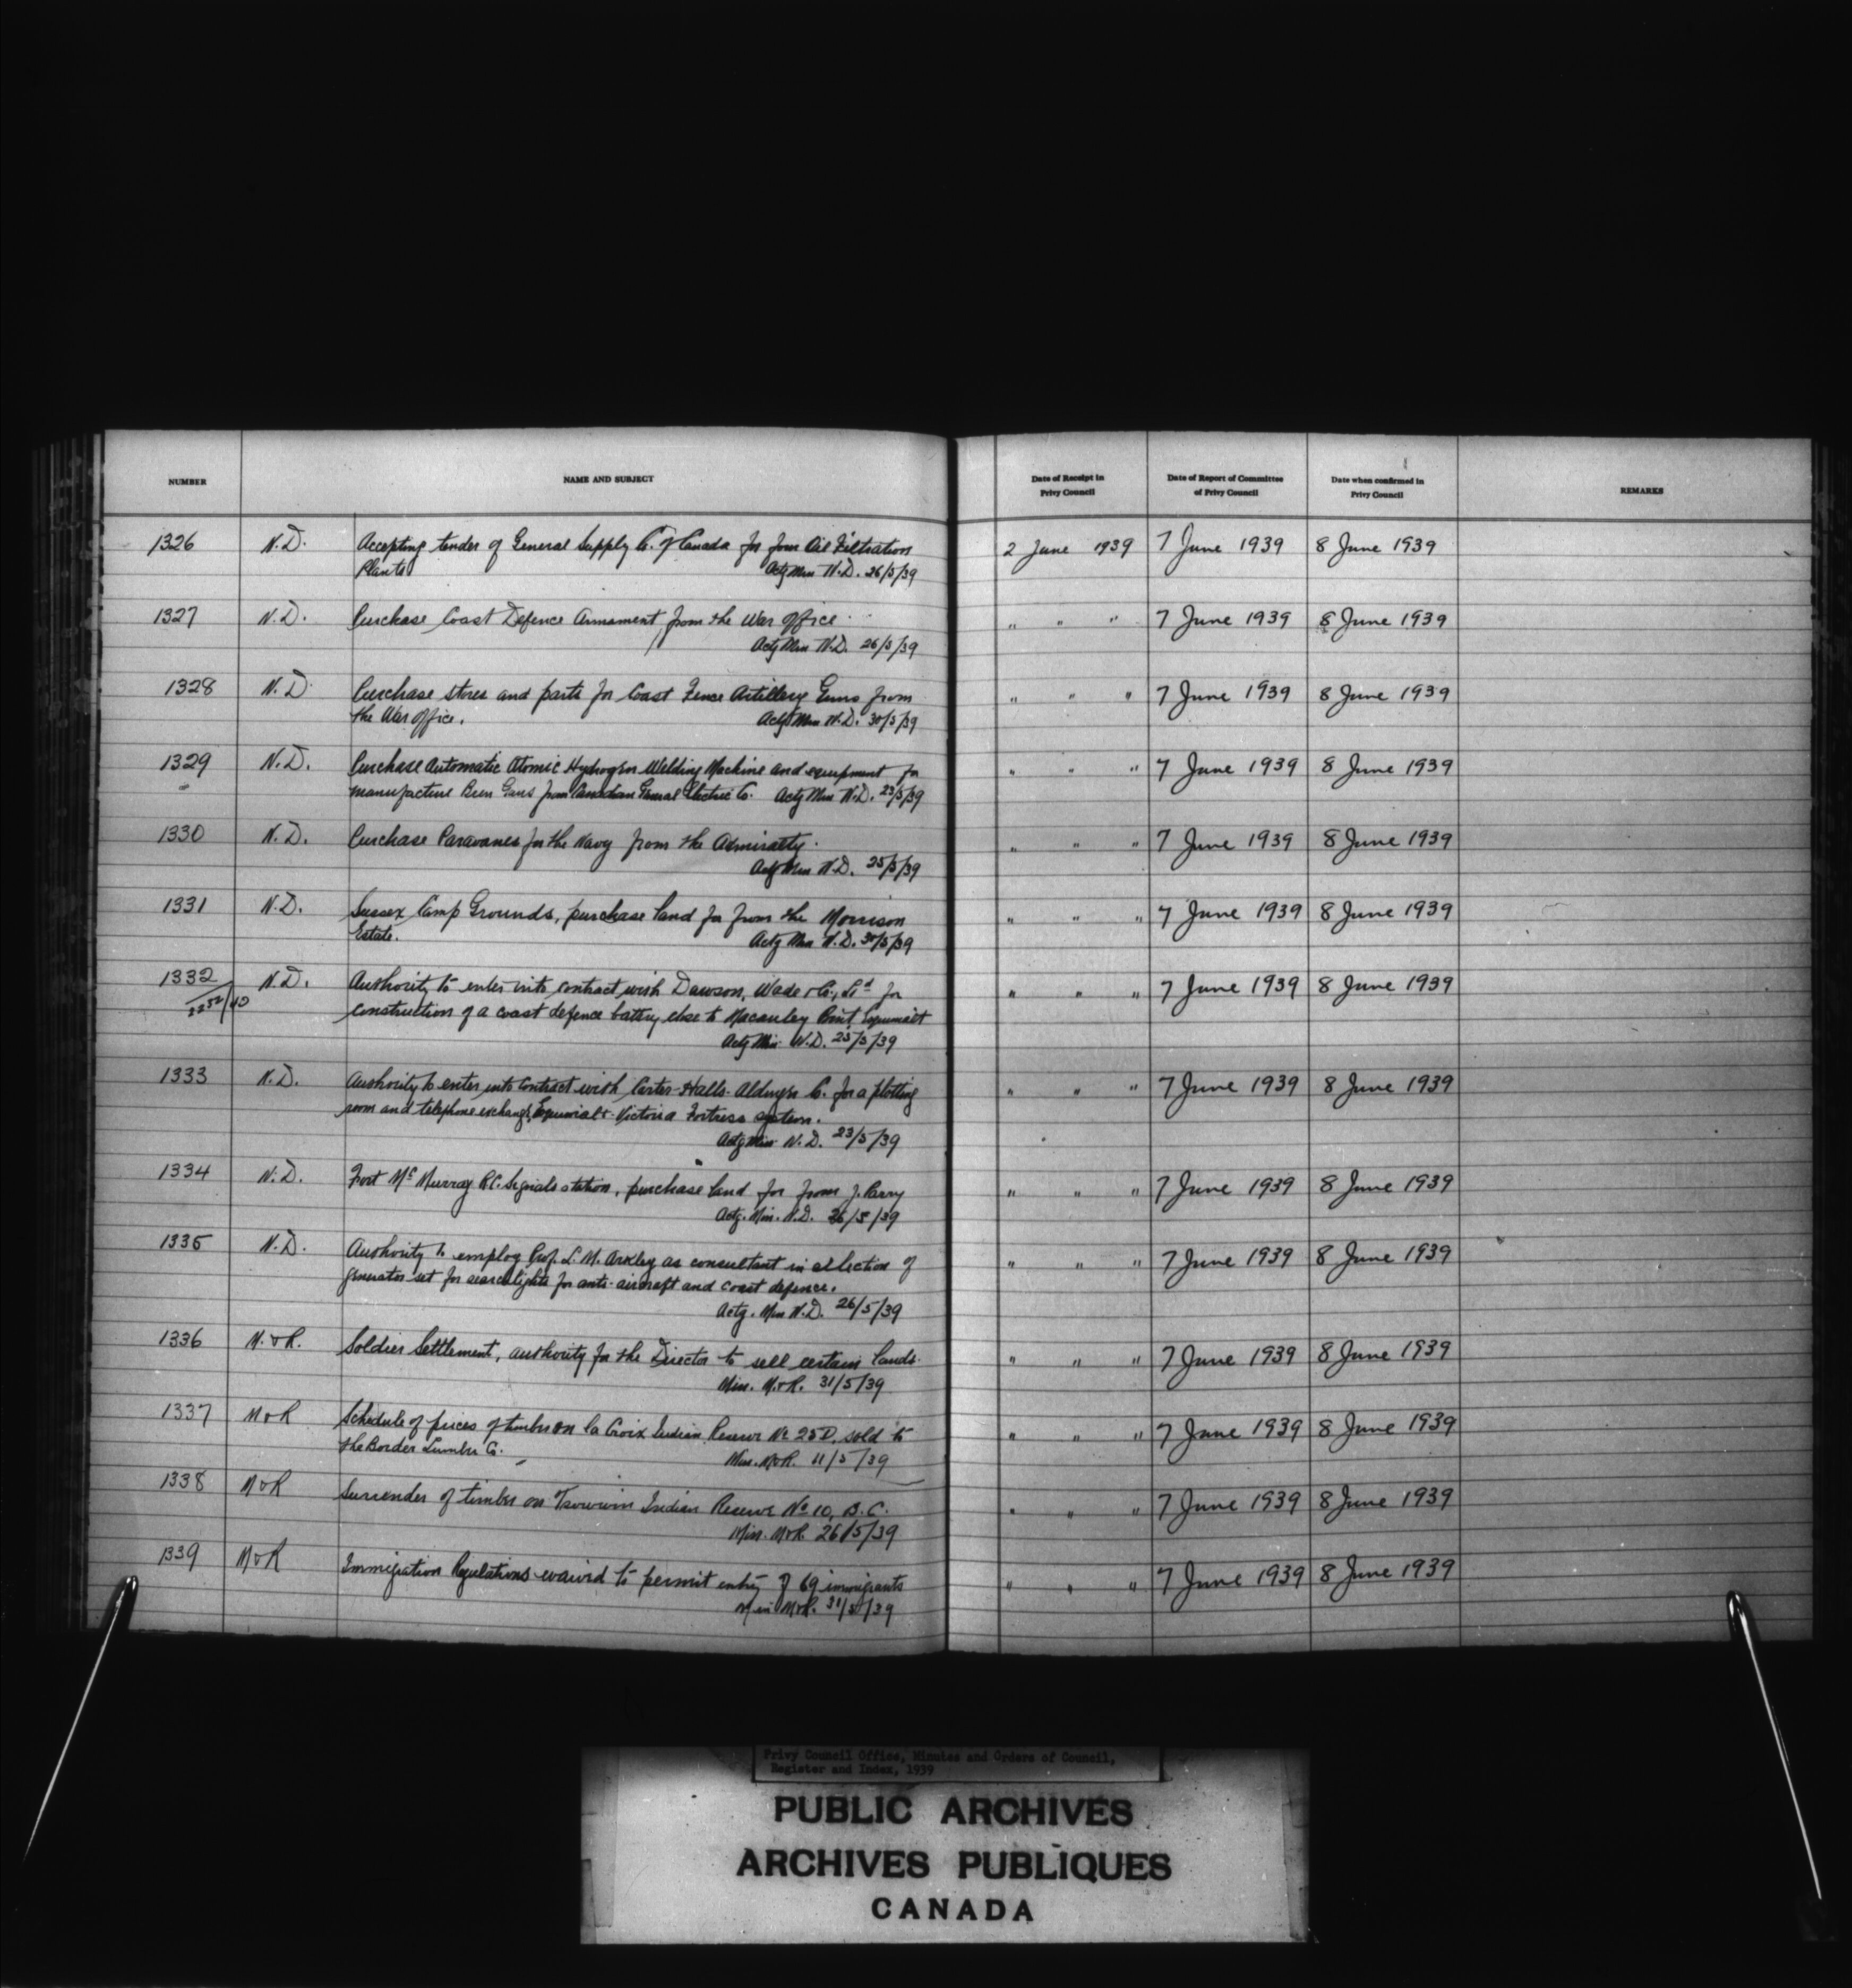 NUMBER NAME AND SUBJECT Date of Receipt in Privy Council Date of Report of Committee of Privy Council Date when confirmed in Privy Council REMARKS
1326 N.D. Accepting tender of General Supply Co. of Canada for four Oil Filtration 2 June 1939 7 June 1939 8 June 1939
Plants Actg Min N.D. 26/5/39
1327 N.D. Purchase Coast Defence Armament from the War Office. " " " 7 June 1939 8 June 1939
Actg Min N.D. 26/5/39
1328 N.D. Purchase stores and parts for Coast Fence Artillery Guns from " " " 7 June 1939 8 June 1939
the War Office. Actg Min N.D. 30/5/39
1329 N.D. Purchase Automatic Atomic Hydrogen Welding Machine and equipment for " " " 7 June 1939 8 June 1939
manufacture Bren Guns from Canadian General Electric Co. Actg Min N.D. 23/5/39
1330 N.D. Purchase Paravanes for the Navy from the Admiralty. " " " 7 June 1939 8 June 1939
Actg Min N.D. 25/5/39
1331 N.D. Sussex Camp Grounds, purchase land for from the Morrison " " " 7 June 1939 8 June 1939
Estate. Actg Min N.D. 30/5/39
1332 N.D. Authority to enter into contract with Dawson, Wade & Co., Ltd for " " " 7 June 1939 8 June 1939
construction of a coast defence battery close to Macauley Point, Esquimalt
Actg Min N.D. 25/5/39
1333 N.D. Authority to enter into contract with Carter-Halls-Aldinger Co. for a plotting " " " 7 June 1939 8 June 1939
room and telephone exchange, Esquimalt-Victoria Fortress system.
Actg Min N.D. 23/5/39
1334 N.D. Fort Mc Murray R.C. Signals station, purchase land for from J. Parry " " " 7 June 1939 8 June 1939
Actg. Min. N.D. 26/5/39
1335 N.D. Authority to employ Prof. L. M. Arkley as consultant in selection of " " " 7 June 1939 8 June 1939
generator set for searchlights for anti-aircraft and coast defence.
Actg. Min N.D. 26/5/39
1336 M. & R. Soldier Settlement, authority for the Director to sell certain lands. " " " 7 June 1939 8 June 1939
Min. M. & R. 31/5/39
1337 M & R Schedule of prices of timber on la Croix Indian Reserve No 25D, sold to " " " 7 June 1939 8 June 1939
the Border Lumber Co. Min. M & R. 11/5/39
1338 M & R Surrender of timber on Tsowwin Indian Reserve No 10, B.C. " " " 7 June 1939 8 June 1939
Min. M & R. 26/5/39
1339 M & R Immigration Regulations waived to permit entry of 69 immigrants " " " 7 June 1939 8 June 1939
Min M & R. 31/5/39
Privy Council Office, Minutes and Orders of Council,
Register and Index, 1939
PUBLIC ARCHIVES
ARCHIVES PUBLIQUES
CANADA